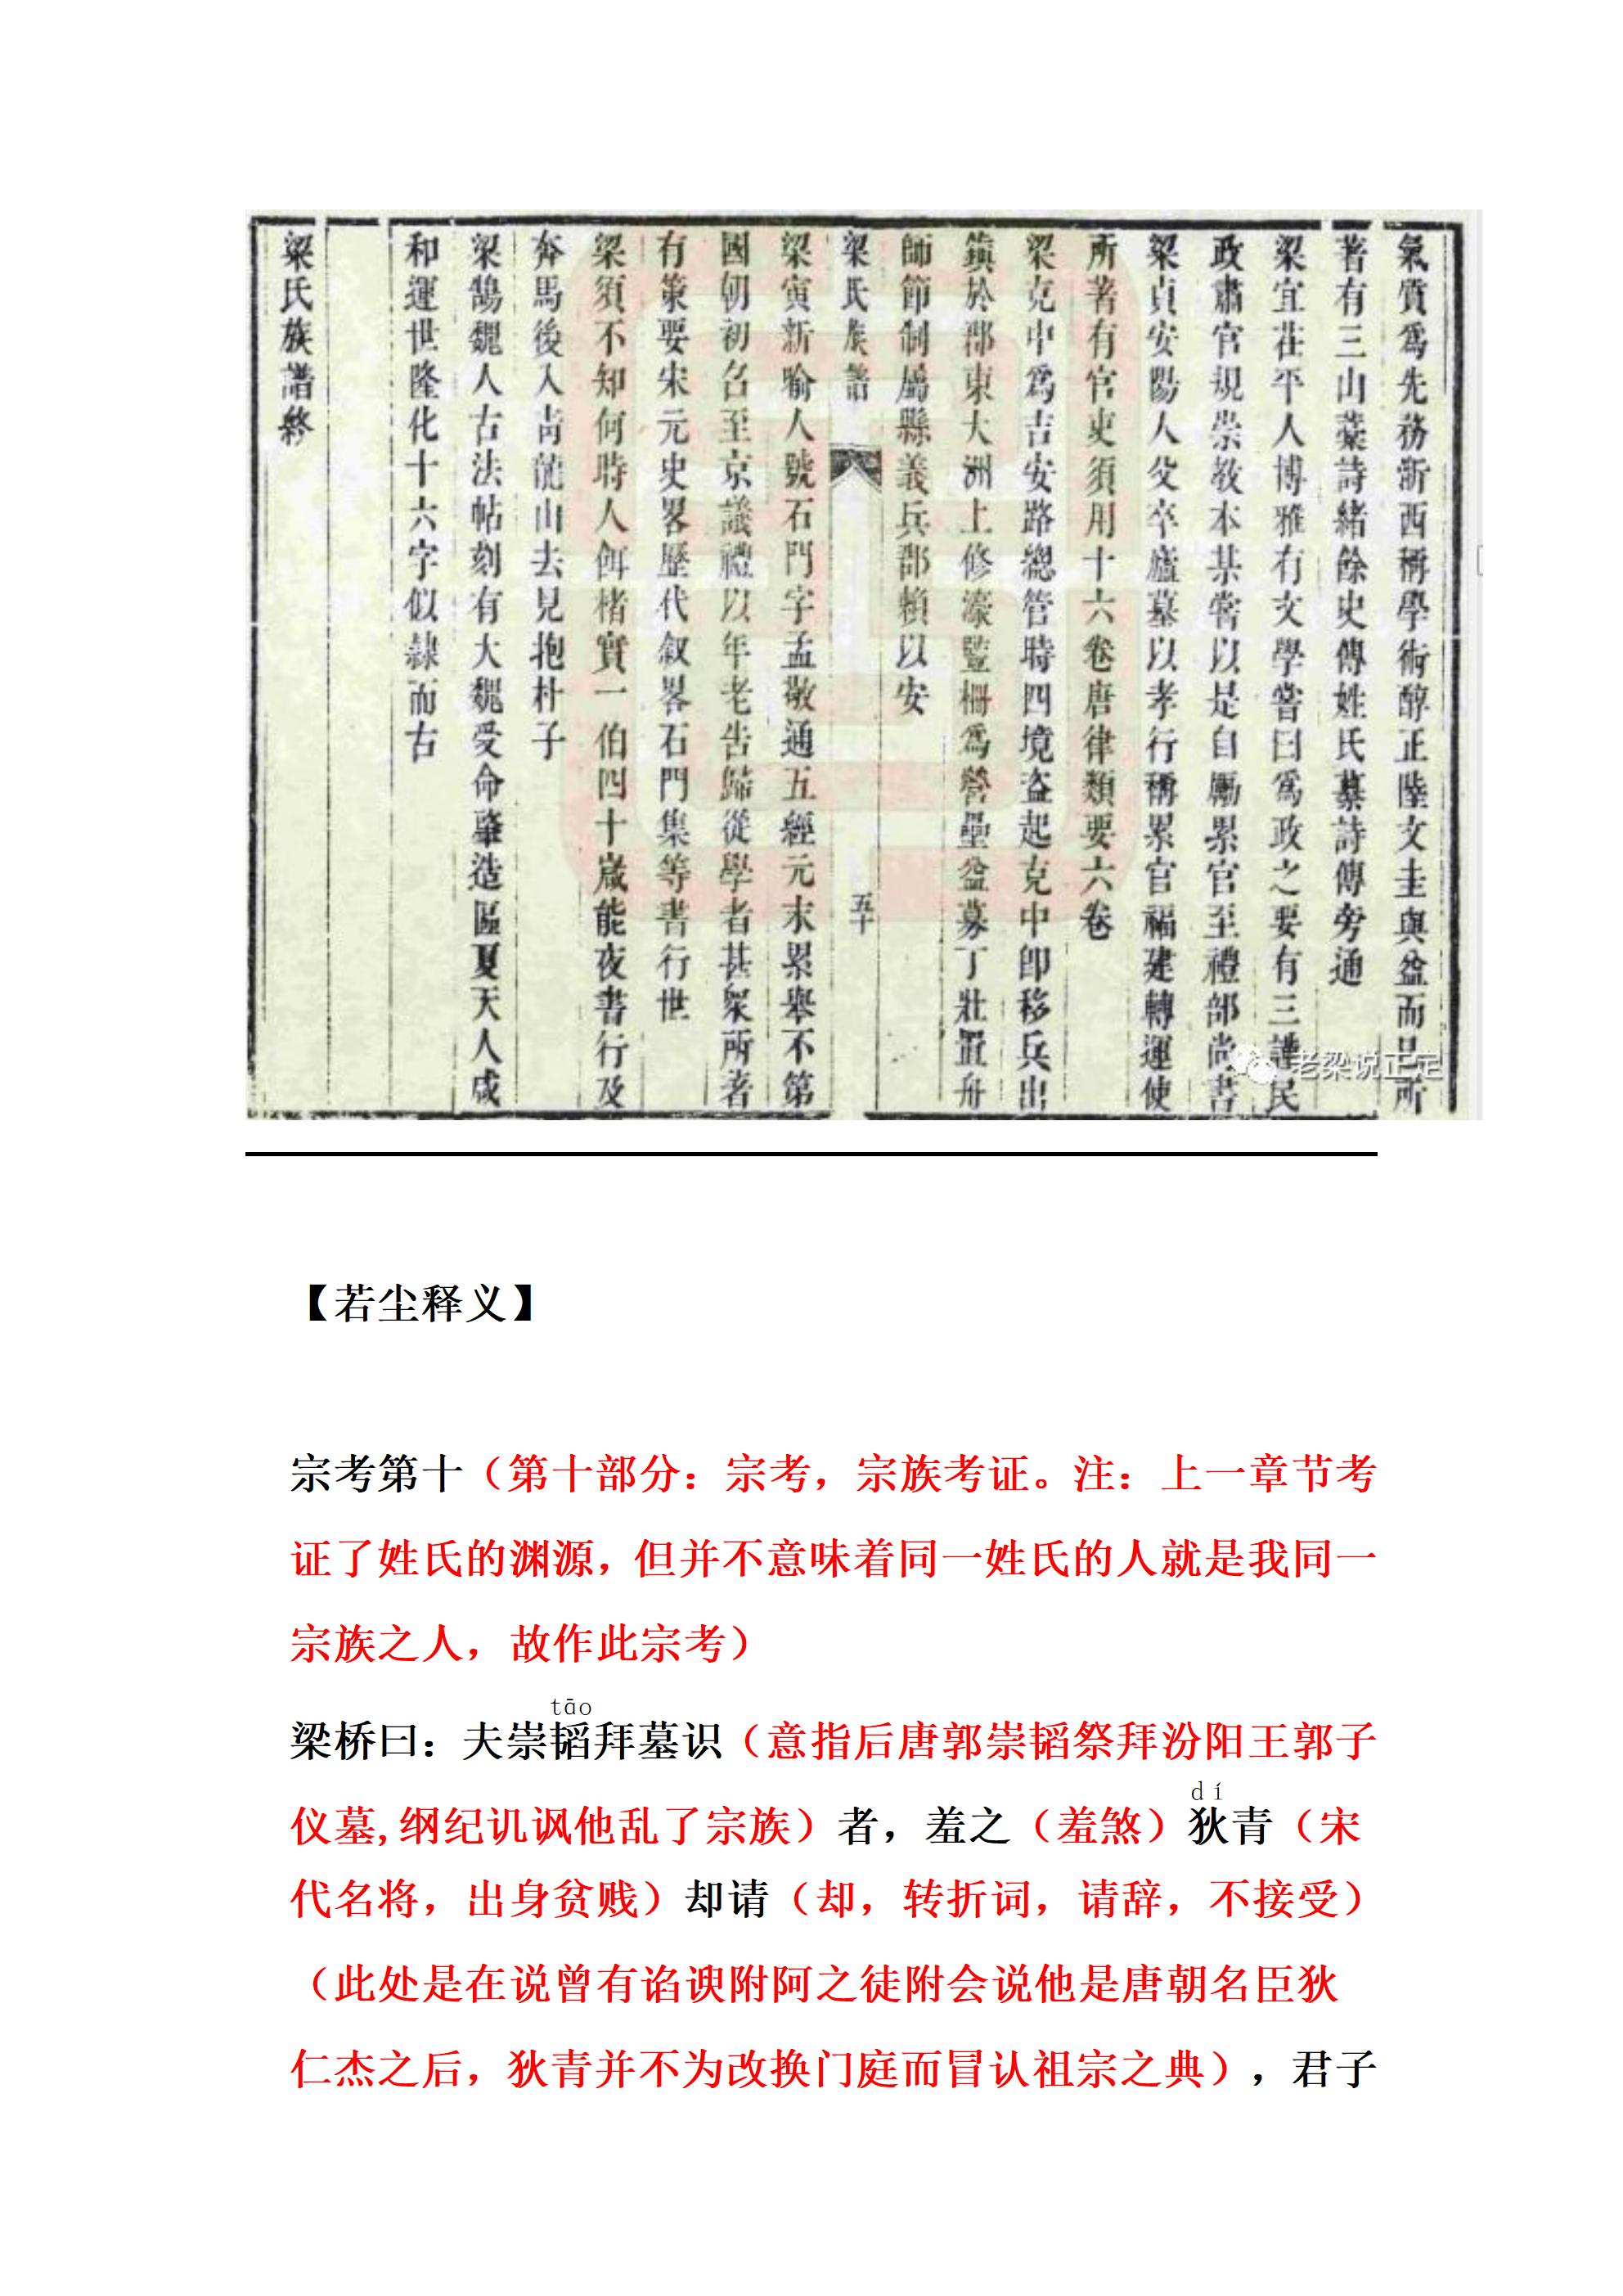 氣質爲先務浙西稱學術醇正陸文圭與益而已所
著有三山藁詩緒餘史傳姓氏纂詩傳旁通
梁宜茌平人博雅有文學嘗曰爲政之要有三謹民
政肅官規崇教本某嘗以是自勵累官至禮部尚書
梁貞安陽人父卒廬墓以孝行稱累官福建轉運使
所著有官吏須用十六卷唐律類要六卷
梁克中爲吉安路總管時四境盗起克中卽移兵出
鎮於郡東大洲上修濠豎柵爲營壘益募丁壯置舟
師節制屬縣義兵郡賴以安
梁氏族譜
五十
梁寅新喻人號石門字孟敬通五經元末累舉不第
國朝初召至京議禮以年老告歸從學者甚衆所著
有策要宋元史畧歷代叙畧石門集等書行世
梁須不知何時人餌楮實一伯四十歲能夜書行及
奔馬後入靑龍山去見抱朴子
梁鵠魏人古法帖刻有大魏受命肇造區夏天人咸
和運世隆化十六字似隸而古
梁氏族譜終
老梁说正定
【若尘释义】
宗考第十（第十部分：宗考，宗族考证。注：上一章节考
证了姓氏的渊源，但并不意味着同一姓氏的人就是我同一
宗族之人，故作此宗考）
tāo
梁桥曰：夫崇韬拜墓识（意指后唐郭崇韬祭拜汾阳王郭子
dí
仪墓,纲纪讥讽他乱了宗族）者，羞之（羞煞）狄青（宋
代名将，出身贫贱）却请（却，转折词，请辞，不接受）
（此处是在说曾有谄谀附阿之徒附会说他是唐朝名臣狄
仁杰之后，狄青并不为改换门庭而冒认祖宗之典），君子